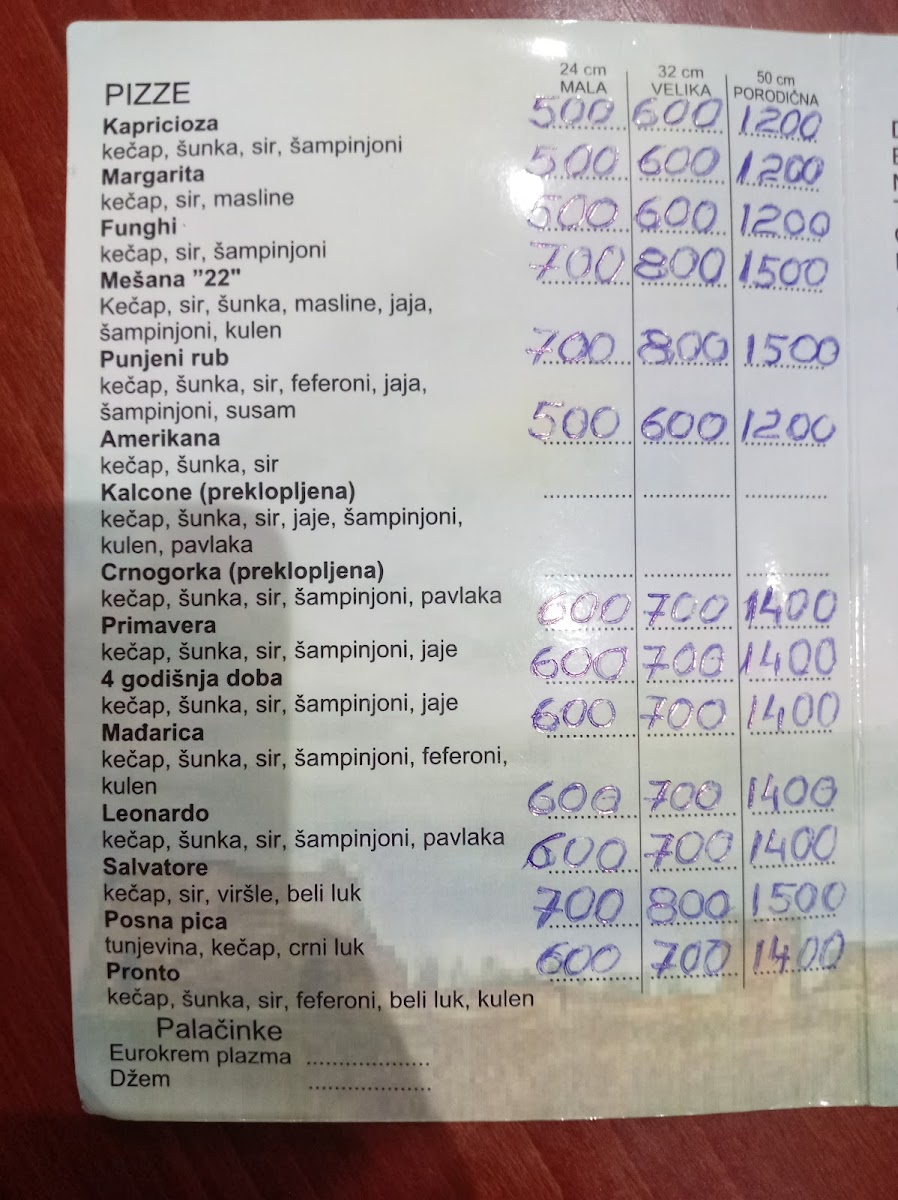 24 cm 32 cm 50 cm
PIZZE MALA VELIKA PORODIČNA
Kapricioza 500 600 1200
kečap, šunka, sir, šampinjoni
Margarita 500 600 1200
kečap, sir, masline
Funghi 500 600 1200
kečap, sir, šampinjoni
Mešana ”22" 700 800 1500
Kečap, sir, šunka, masline, jaja,
šampinjoni, kulen
Punjeni rub 700 800 1500
kečap, šunka, sir, feferoni, jaja,
šampinjoni, susam
Amerikana 500 600 1200
kečap, šunka, sir
Kalcone (preklopljena)
kečap, šunka, sir, jaje, šampinjoni,
kulen, pavlaka
Crnogorka (preklopljena)
kečap, šunka, sir, šampinjoni, pavlaka
Primavera 600 700 1400
kečap, šunka, sir, šampinjoni, jaje
4 godišnja doba 600 700 1400
kečap, šunka, sir, šampinjoni, jaje
Mađarica 600 700 1400
kečap, šunka, sir, šampinjoni, feferoni,
kulen
Leonardo 600 700 1400
kečap, šunka, sir, šampinjoni, pavlaka
Salvatore 600 700 1400
kečap, sir, viršle, beli luk
Posna pica 700 800 1500
tunjevina, kečap, crni luk
Pronto 600 700 1400
kečap, šunka, sir, feferoni, beli luk, kulen
Palačinke
Eurokrem plazma
Džem